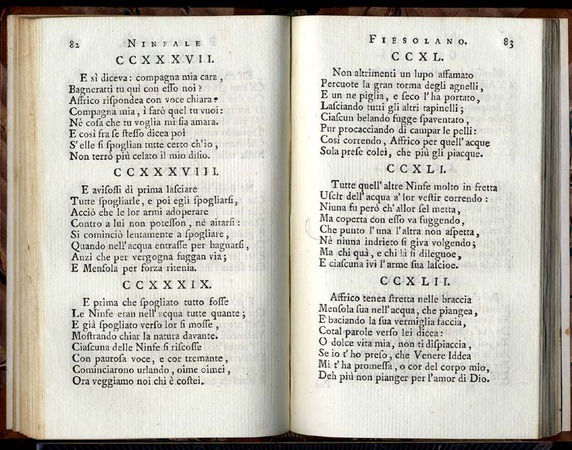 82
NINFALE
CCXXXVII.
E sì diceva: compagna mia cara,
Bagneratti tu quì con esso noi?
Affrico rispondea con voce chiara:
Compagna mia, i sarò quel tu vuoi:
Nè cosa che tu voglia mi sia amara.
E così fra se stesso dicea poi
S'elle si spoglian tutte certo ch'io,
Non terrò più celato il mio disio.
CCXXXVIII.
E avisossi di prima lasciare
Tutte spogliarle, e poi egli spogliarsi,
Acciò che le lor armi adoperare
Contro a lui non potesson, nè aitarsi:
Si cominciò lentamente a spogliare,
Quando nell'acqua entrasse per bagnarsi,
Anzi che per vergogna fuggan via;
E Mensola per forza ritenia.
CCXXXIX.
E prima che spogliato tutto fosse
Le Ninfe eran nell'acqua tutte quante;
E già spogliato verso lor si mosse,
Mostrando chiar la natura davante.
Ciascuna delle Ninfe si riscosse
Con paurosa voce, e cor tremante,
Cominciarono urlando, oime oimei,
Ora veggiamo noi chi è costei.
FIESOLANO.
83
CCXL.
Non altrimenti un lupo affamato
Percuote la gran torma degli agnelli,
E un ne piglia, e seco l'ha portato,
Lasciando tutti gli altri tapinelli;
Ciascun belando fugge spaventato,
Pur procacciando di campar le pelli:
Così correndo, Affrico per quell'acque
Sola prese colei, che più gli piacque.
CCXLI.
Tutte quell'altre Ninfe molto in fretta
Uscir dell'acqua a'lor vestir correndo:
Niuna fu però ch'allor sel metta,
Ma coperta con esso va fuggendo,
Che punto l'una l'altra non aspetta,
Nè niuna indrieto si giva volgendo;
Ma chi quà, e chi là si dileguoe,
E ciascuna ivi l'arme sua lascioe.
CCXLII.
Affrico tenea stretta nelle braccia
Mensola sua nell'acqua, che piangea,
E baciando la sua vermiglia faccia,
Cotal parole verso lei dicea:
O dolce vita mia, non ti dispiaccia,
Se io t'ho preso, che Venere Iddea
Mi t'ha promessa, o cor del corpo mio,
Deh più non pianger per l'amor di Dio.